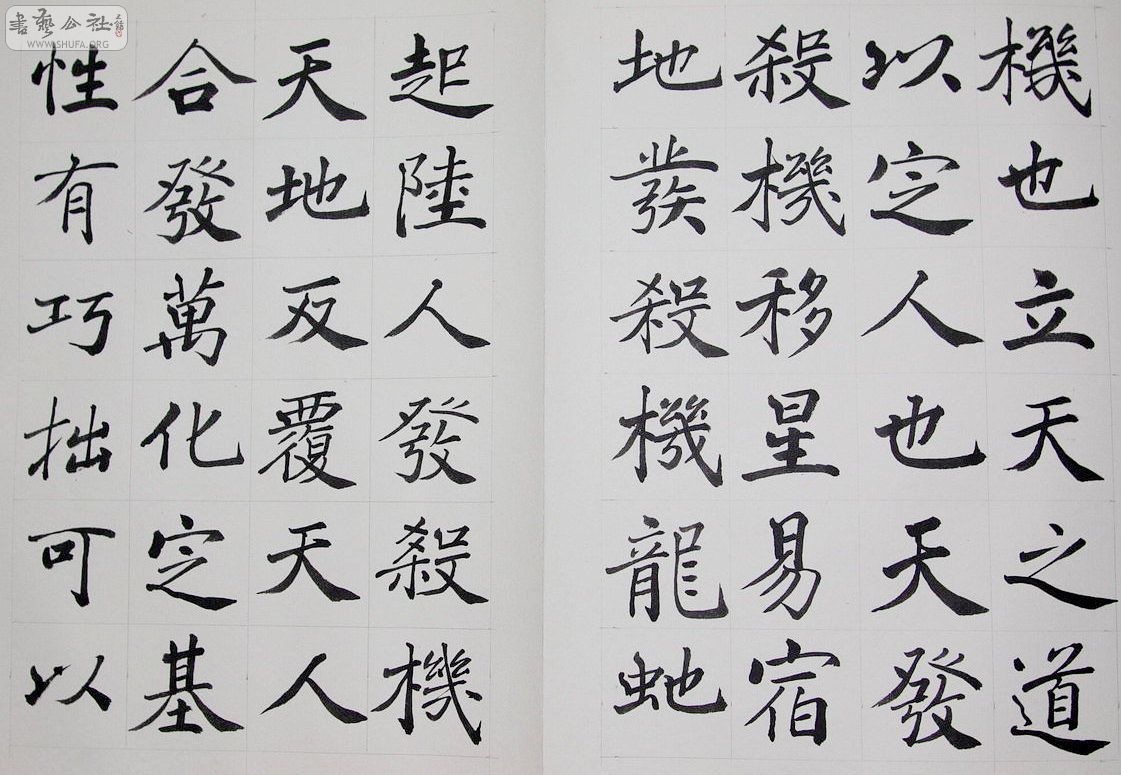 機也立天之道
以定人也天發
殺機移星易宿
地發殺機龍虵
起陸人發殺機
天地反覆天人
合發萬化定基
性有巧拙可以
書藝公社
WWW.SHUFA.ORG